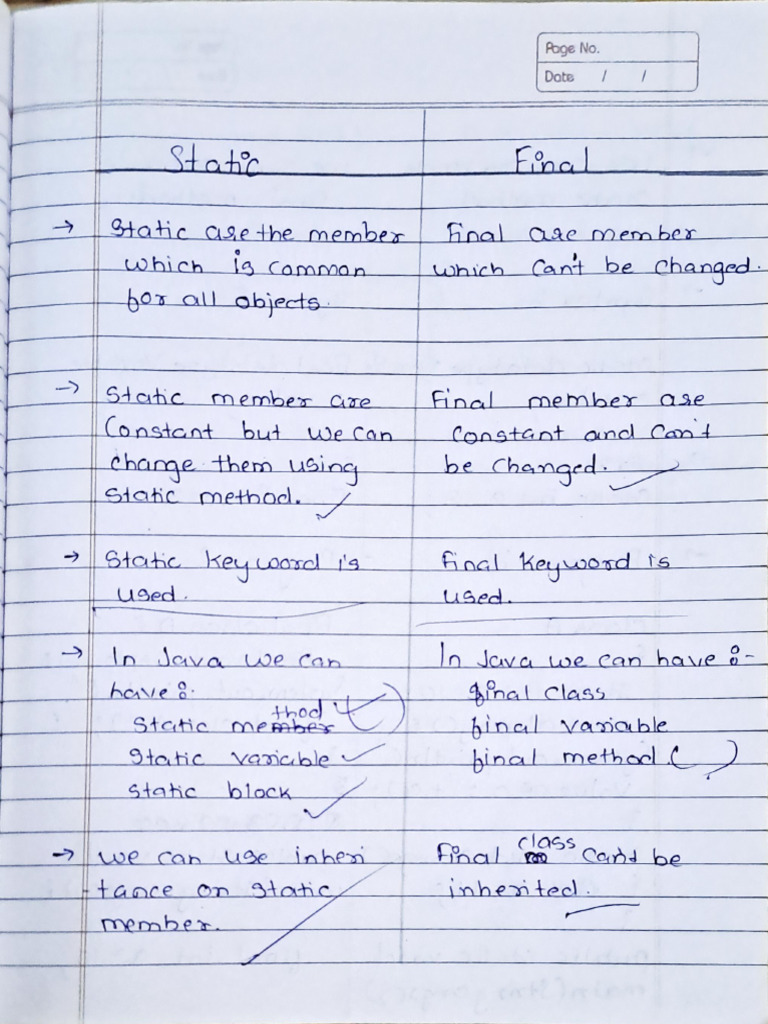 Page No.
Date / /
Static Final
→ Static are the member
which is common
for all objects.
final are member
which can't be changed.
→ Static member are
Constant but we can
change them using
static method.
Final member are
constant and can't
be changed.
→ Static keyword is
used.
final keyword is
used.
→ In Java we can
have :-
static method
static variable
static block
In Java we can have :-
final class
final variable
final method. ( )
→ we can use inheri
tance on static
member.
Final class can't be
inherited.